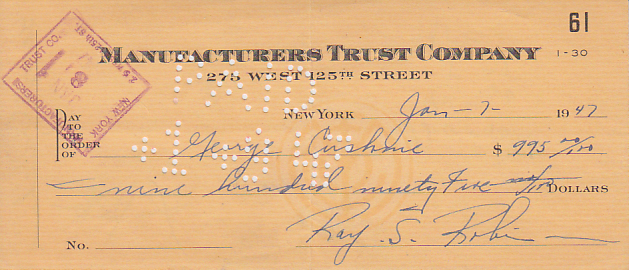 61
MANUFACTURERS TRUST COMPANY
1-30
275 WEST 125TH STREET
NEW YORK Jan-7- 1947
PAY TO THE ORDER OF George Cushnie $ 995 00/100
nine hundred ninety five 00/100 DOLLARS
No. Ray S. Robin
MANUFACTURERS TRUST CO.
NEW YORK
PAID